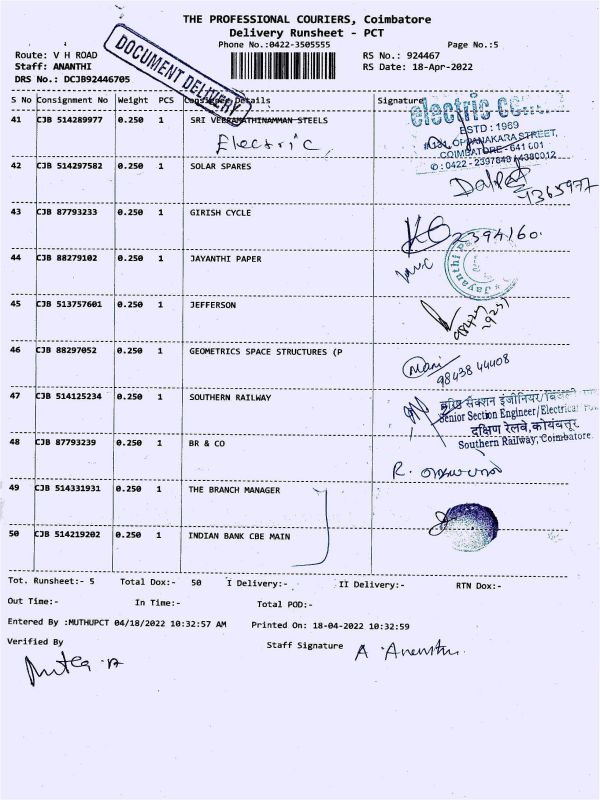 THE PROFESSIONAL COURIERS, Coimbatore
Delivery Runsheet - PCT
Phone No.:0422-3505555
Page No.:5
Route: V H ROAD
RS No.: 924467
Staff: ANANTHI
RS Date: 18-Apr-2022
DRS No.: DCJB92446705
DOCUMENT DELIVERY
S No Consignment No Weight PCS Consignee Details Signature
41 CJB 514289977 0.250 1 SRI VEERAMATHINAMMAN STEELS
Electric
electric
ESTD : 1969
STREET,
COIMBATORE - 641 001
42 CJB 514297582 0.250 1 SOLAR SPARES
43 CJB 87793233 0.250 1 GIRISH CYCLE
2394160.
44 CJB 88279102 0.250 1 JAYANTHI PAPER
Jayanthi
45 CJB 513757601 0.250 1 JEFFERSON
46 CJB 88297052 0.250 1 GEOMETRICS SPACE STRUCTURES (P
Mani
98438 44408
47 CJB 514125234 0.250 1 SOUTHERN RAILWAY
सैक्शन इंजीनियर/
Senior Section Engineer/Electrical
दक्षिण रेलवे,कोयंबत्तूर
Southern Railway, Coimbatore.
48 CJB 87793239 0.250 1 BR & CO
R.
49 CJB 514331931 0.250 1 THE BRANCH MANAGER
50 CJB 514219202 0.250 1 INDIAN BANK CBE MAIN
Tot. Runsheet:- 5 Total Dox:- 50 I Delivery:- II Delivery:- RTN Dox:-
Out Time:- In Time:- Total POD:-
Entered By :MUTHUPCT 04/18/2022 10:32:57 AM Printed On: 18-04-2022 10:32:59
Verified By Staff Signature
A Ananthi